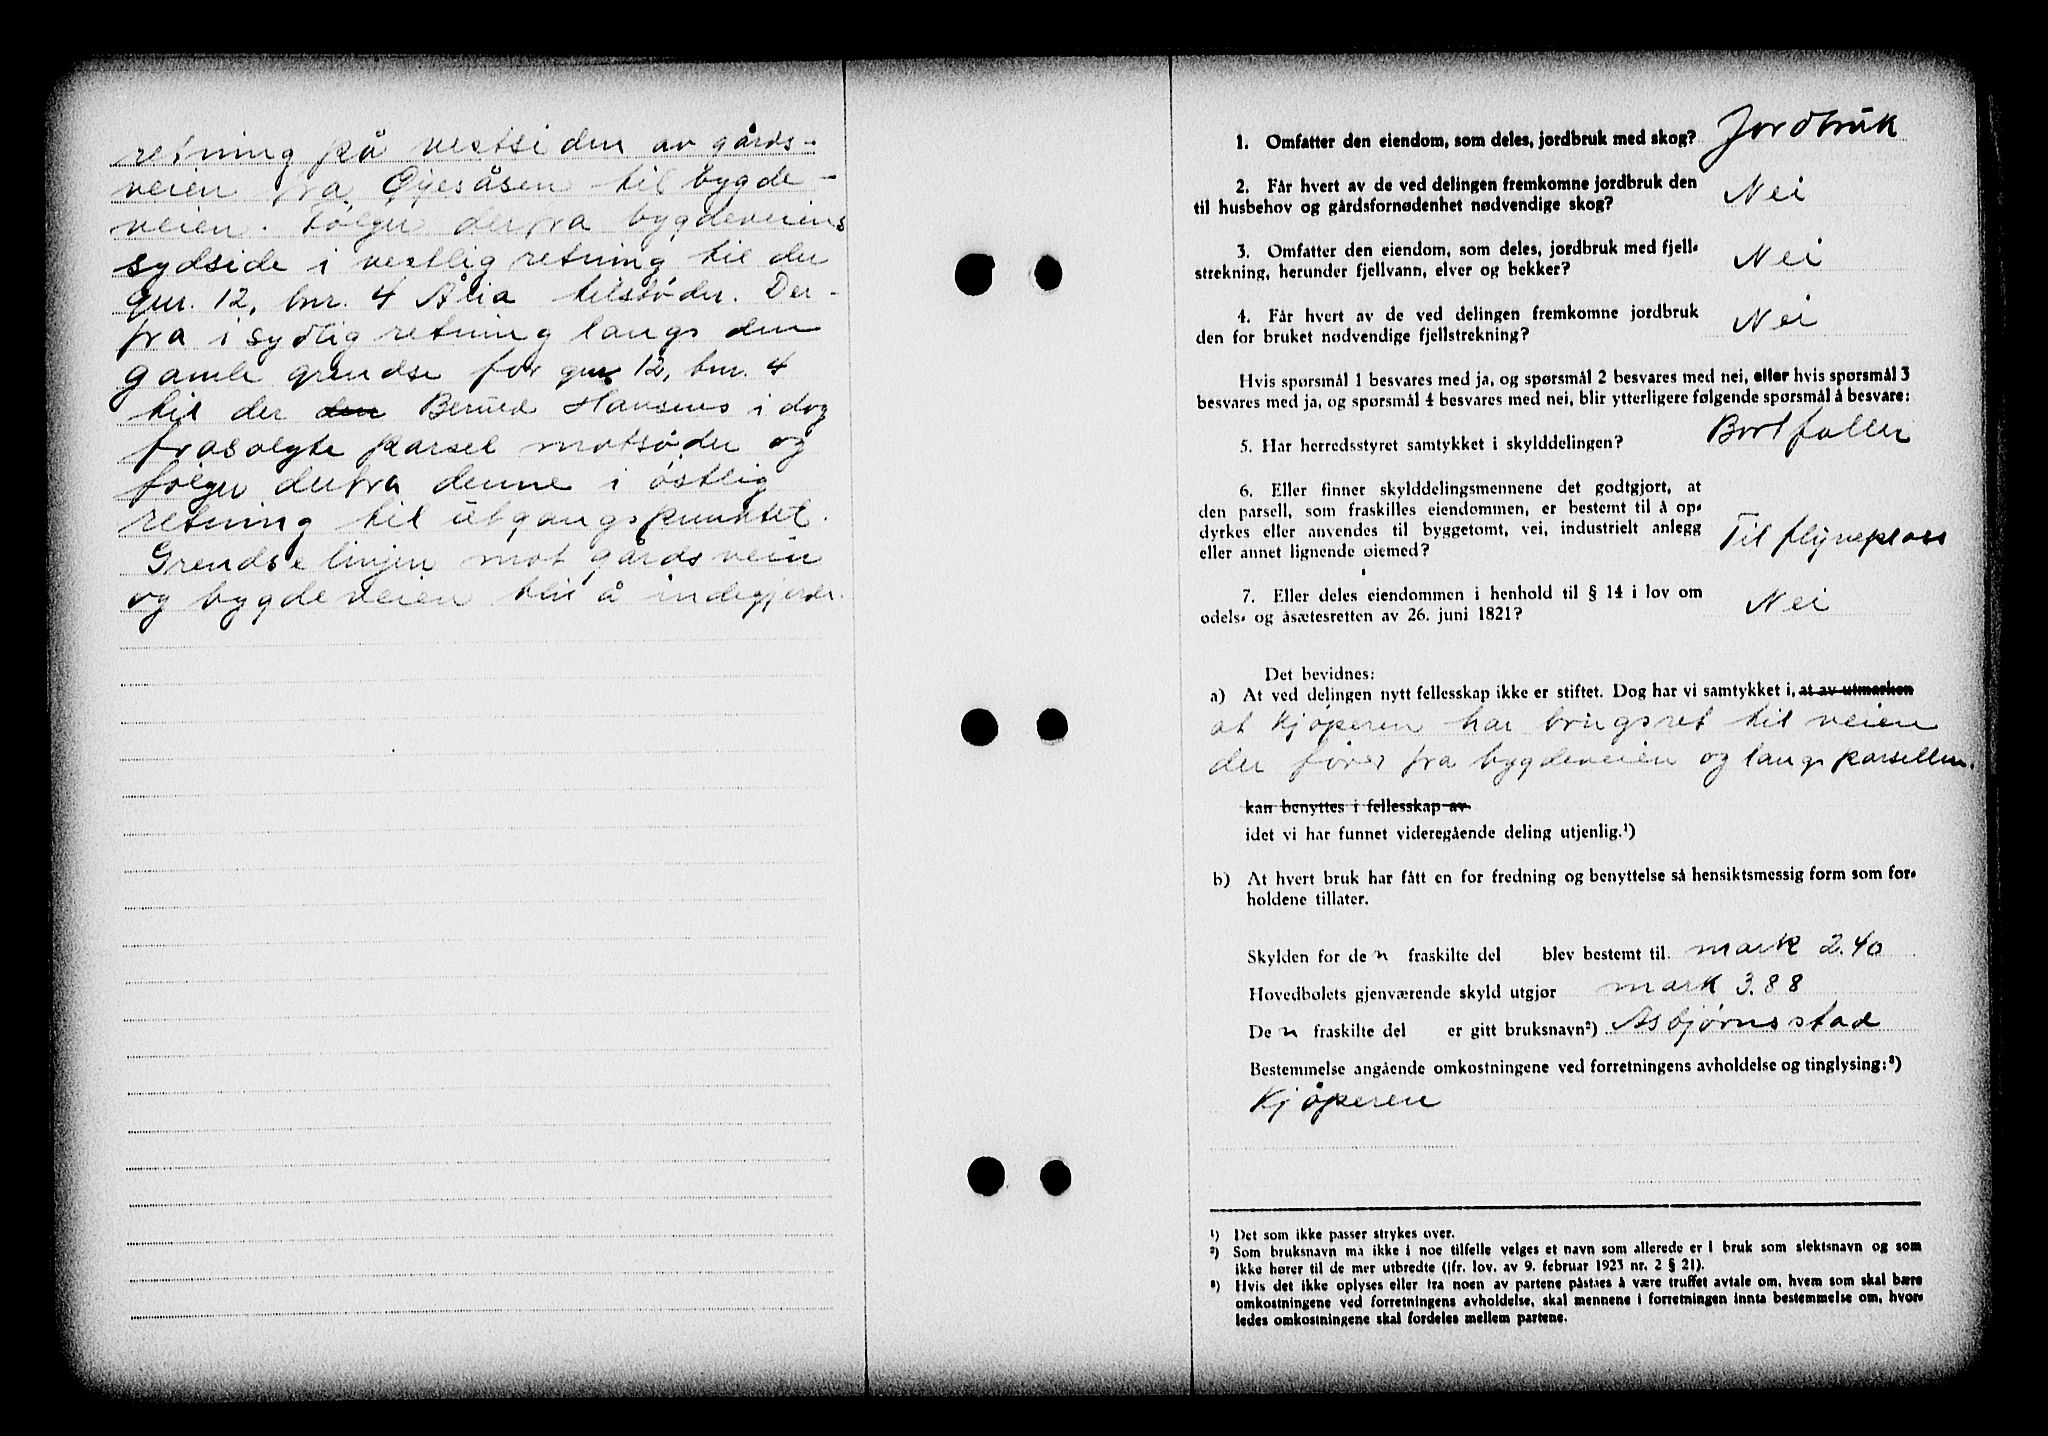 retning på vestsiden av gårds-
veien fra Øyesåsen til bygde-
veien. Følger derfra bygdeveiens
sydside i vestlig retning til der
gnr. 12, bnr. 4 Ålia tilstøder. Der-
fra i sydlig retning langs den
gamle grendse for gnr 12, bnr. 4
til der den Hansens i dag
frasolgte parsel motsøder og
følger derfra denne i østlig
retning til utgangspunktet.
Grendselinjen mot gårdsveien
og bygdeveien blir å indegjerde.
1. Omfatter den eiendom, som deles, jordbruk med skog? Jordbruk
2. Får hvert av de ved delingen fremkomne jordbruk den
til husbehov og gårdsfornødenhet nødvendige skog? Nei
3. Omfatter den eiendom, som deles, jordbruk med fjell-
strekning, herunder fjellvann, elver og bekker? Nei
4. Får hvert av de ved delingen fremkomne jordbruk
den for bruket nødvendige fjellstrekning? Nei
Hvis spørsmål 1 besvares med ja, og spørsmål 2 besvares med nei, eller hvis spørsmål 3
besvares med ja, og spørsmål 4 besvares med nei, blir ytterligere følgende spørsmål å besvare:
5. Har herredsstyret samtykket i skylddelingen? Bortfaller
6. Eller finner skylddelingsmennene det godtgjort, at
den parsell, som fraskilles eiendommen, er bestemt til å op-
dyrkes eller anvendes til byggetomt, vei, industrielt anlegg
eller annet lignende øiemed? Til flyveplass
7. Eller deles eiendommen i henhold til § 14 i lov om
odels- og åsætesretten av 26. juni 1821? Nei
Det bevidnes:
a) At ved delingen nytt fellesskap ikke er stiftet. Dog har vi samtykket i, at av utmarken
at kjøperen har brugsret til veien
der fører fra bygdeveien og langs parsellen.
kan benyttes i fellesskap av
idet vi har funnet videregående deling utjenlig.¹)
b) At hvert bruk har fått en for fredning og benyttelse så hensiktsmessig form som for-
holdene tillater.
Skylden for den fraskilte del blev bestemt til mark 2.40
Hovedbølets gjenværende skyld utgjør mark 3.88
Den fraskilte del er gitt bruksnavn²) Asbjørnsstad
Bestemmelse angående omkostningene ved forretningens avholdelse og tinglysing:³)
Kjøperen
¹) Det som ikke passer strykes over.
²) Som bruksnavn må ikke i noe tilfelle velges et navn som allerede er i bruk som slektsnavn og som
ikke hører til de mer utbredte (jfr. lov. av 9. februar 1923 nr. 2 § 21).
³) Hvis det ikke oplyses eller fra noen av partene påståes å være truffet avtale om, hvem som skal bære
omkostningene ved forretningens avholdelse, skal mennene i forretningen innta bestemmelse om, hvor-
ledes omkostningene skal fordeles mellem partene.